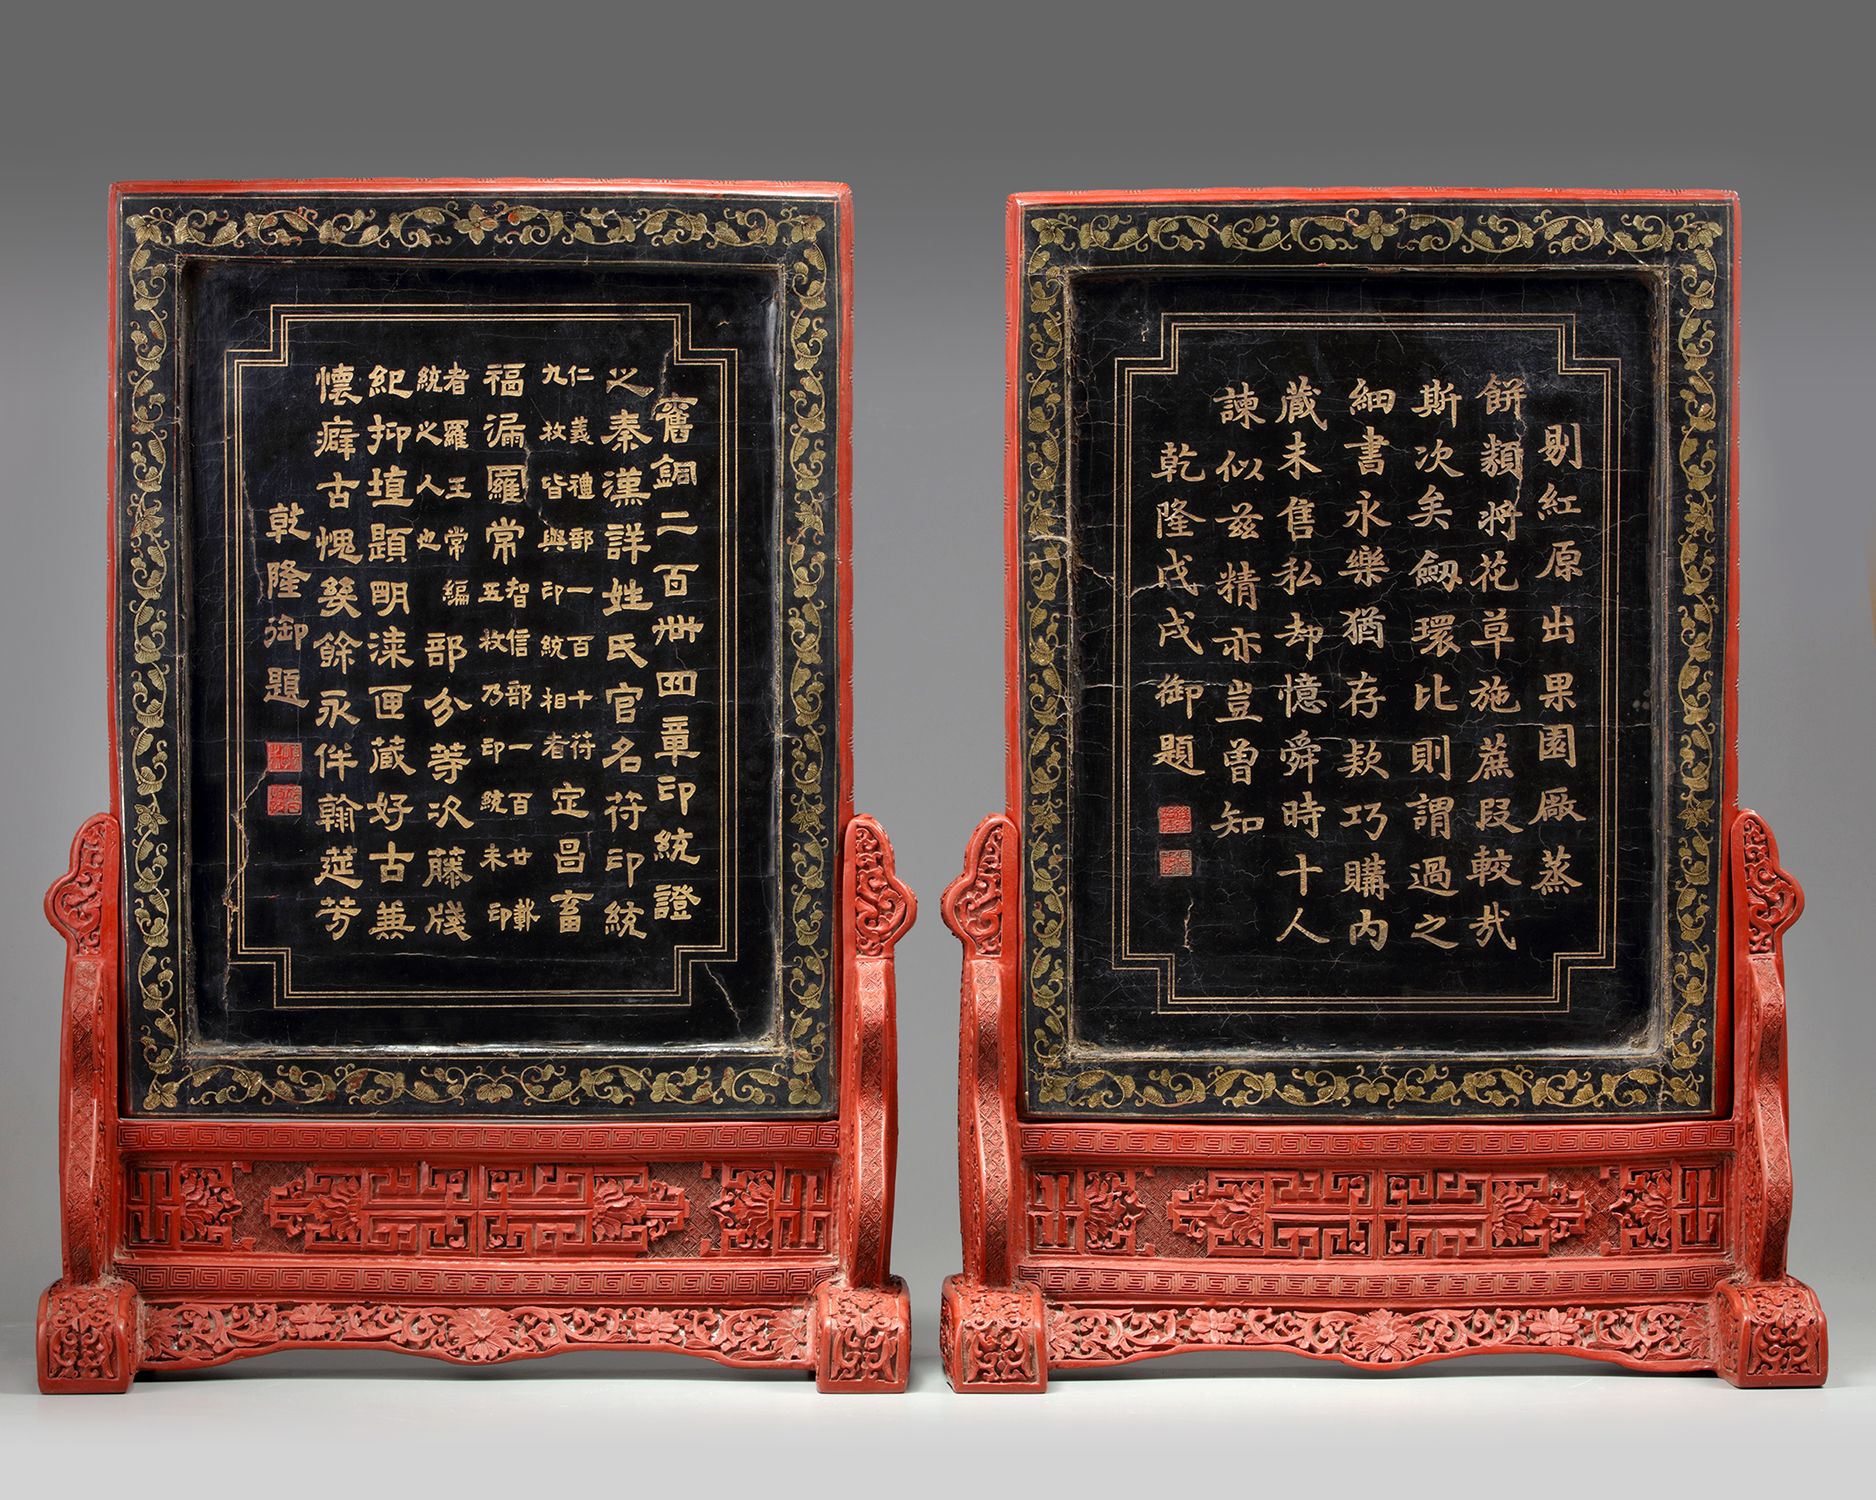 舊銅二百卌四章印統證
之秦漢詳姓氏官名符印統
仁義禮部一百十符
九枚皆與印統相者
定呂畜
福漏羅常
智信部一百廿
五枚乃印統未印
者羅王常編
統之人也
部分等次藤牋
紀抑埴題明漆匣蔵好古兼
懷癖古愧幾餘永伴翰筵芳
乾隆御題
剔紅原出果園厰蒸
餅類將花草施蔗段較哉
斯次矣劒環比則謂過之
細書永樂猶存款巧購内
蔵未售私却憶舜時十人
諫似兹精亦豈曾知
乾隆戊戌御題